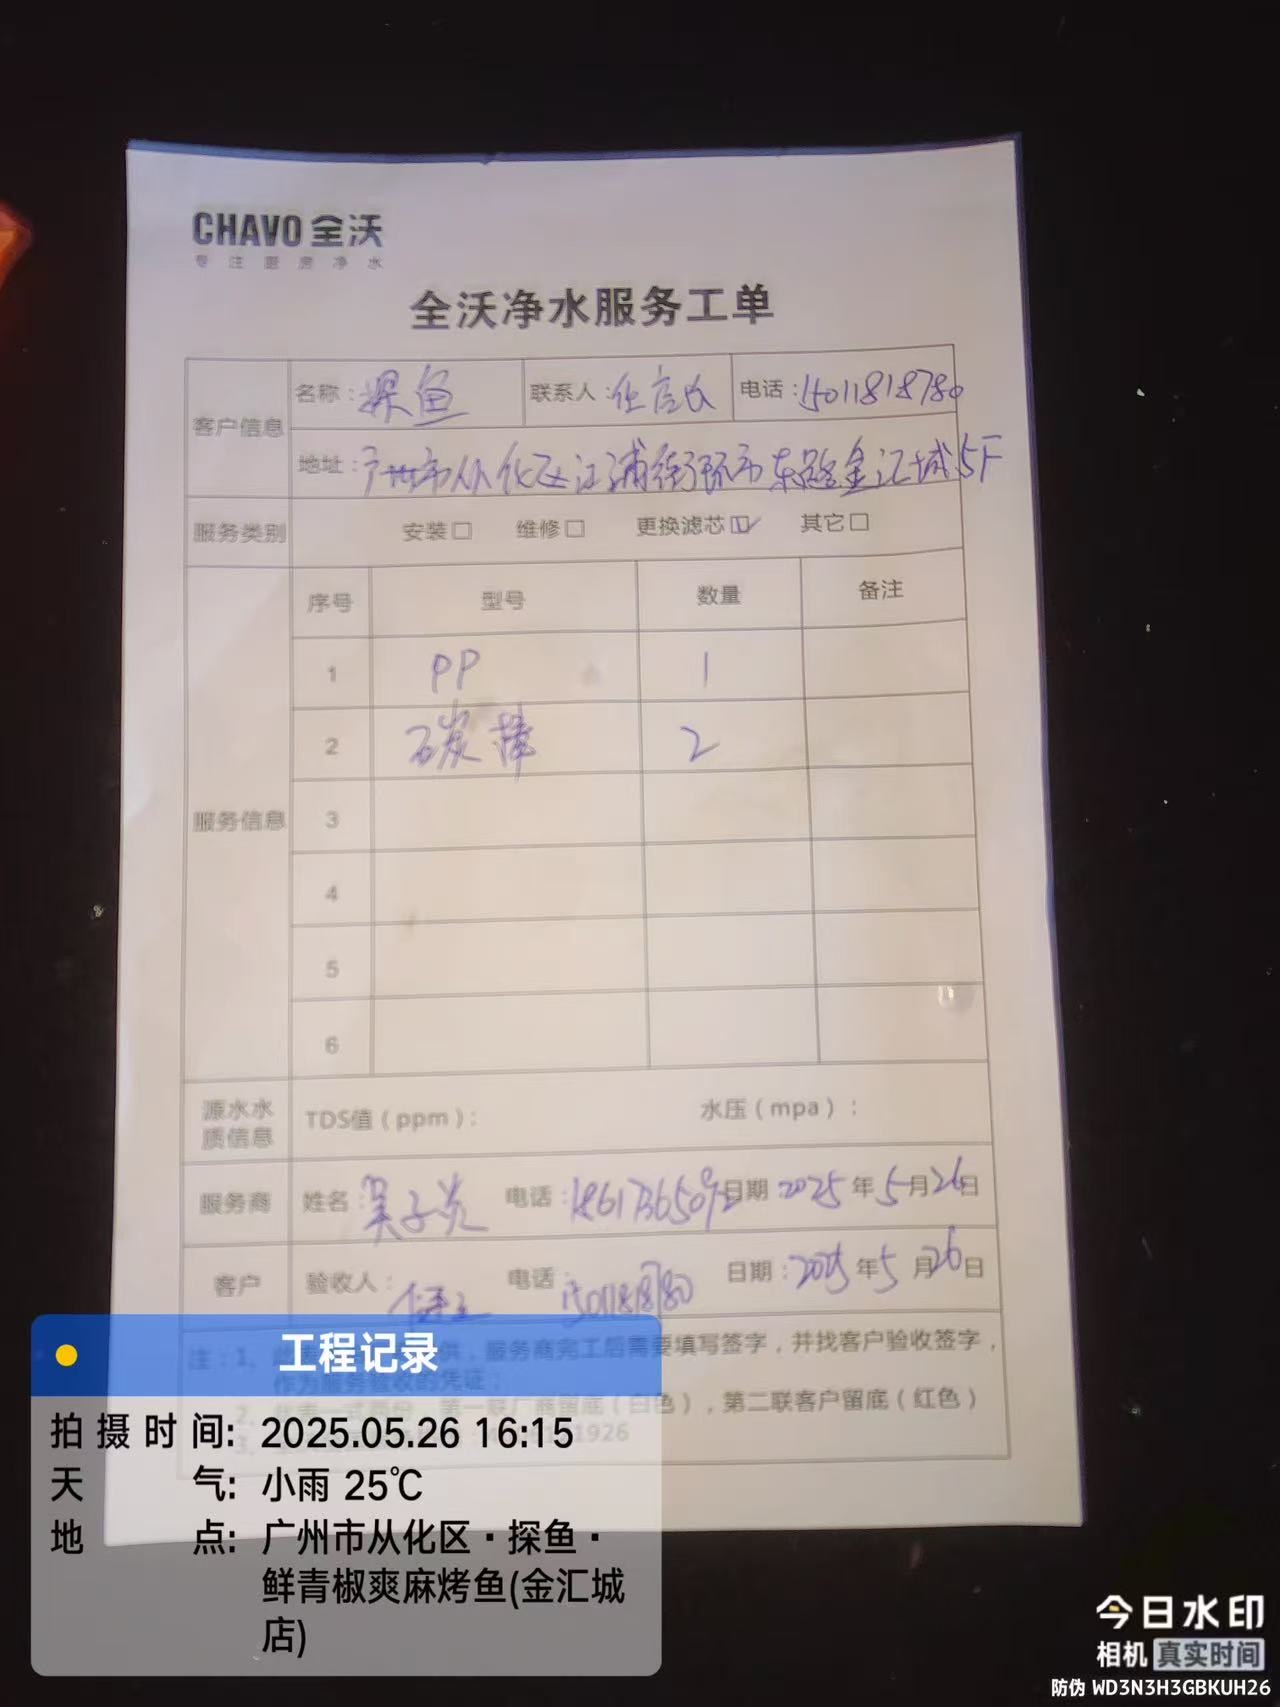 CHAVO 全沃
专注厨房净水
全沃净水服务工单
客户信息 名称：探鱼 联系人：任店长 电话：15011818780
地址：广州市从化区江浦街河东东路金汇城5F
服务类别 安装□ 维修□ 更换滤芯☑ 其它□
服务信息 序号 型号 数量 备注
1 PP 1
2 碳棒 2
3
4
5
6
源水水质信息 TDS值（ppm）： 水压（mpa）：
服务商 姓名：吴子炎 电话： 日期 2025年5月26日
客户 验收人： 电话：15011818780 日期：2025年5月26日
注：1、 供，服务商完工后需要填写签字，并找客户验收签字，
作为服务验收的凭证；
2、此表一式两份，第一联厂商留底（白色），第二联客户留底（红色）
3、
工程记录
拍摄时间: 2025.05.26 16:15
天气: 小雨 25℃
地点: 广州市从化区·探鱼·
鲜青椒爽麻烤鱼(金汇城
店)
今日水印
相机 真实时间
防伪 WD3N3H3GBKUH26